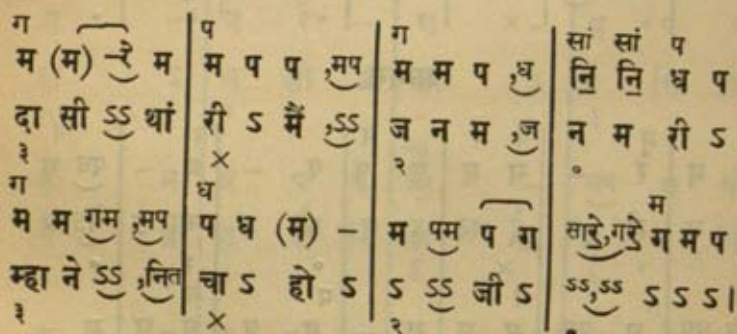 ग प ग सां सां प
म (म) -रे म | म प प ,मप | म म प ,ध | नि नि ध प
दा सी ऽऽ थां | री ऽ मैं ,ऽऽ | ज न म ,ज | न म री ऽ
३ × २ ०
ग ध म
म म गम ,मप | प ध (म) - | म पम प ग | सारे,गरे ग म प
म्हा ने ऽऽ ,नित | चा ऽ हो ऽ | ऽ ऽऽ जी ऽ | ऽऽ,ऽऽ ऽ ऽ ऽ।
३ × २